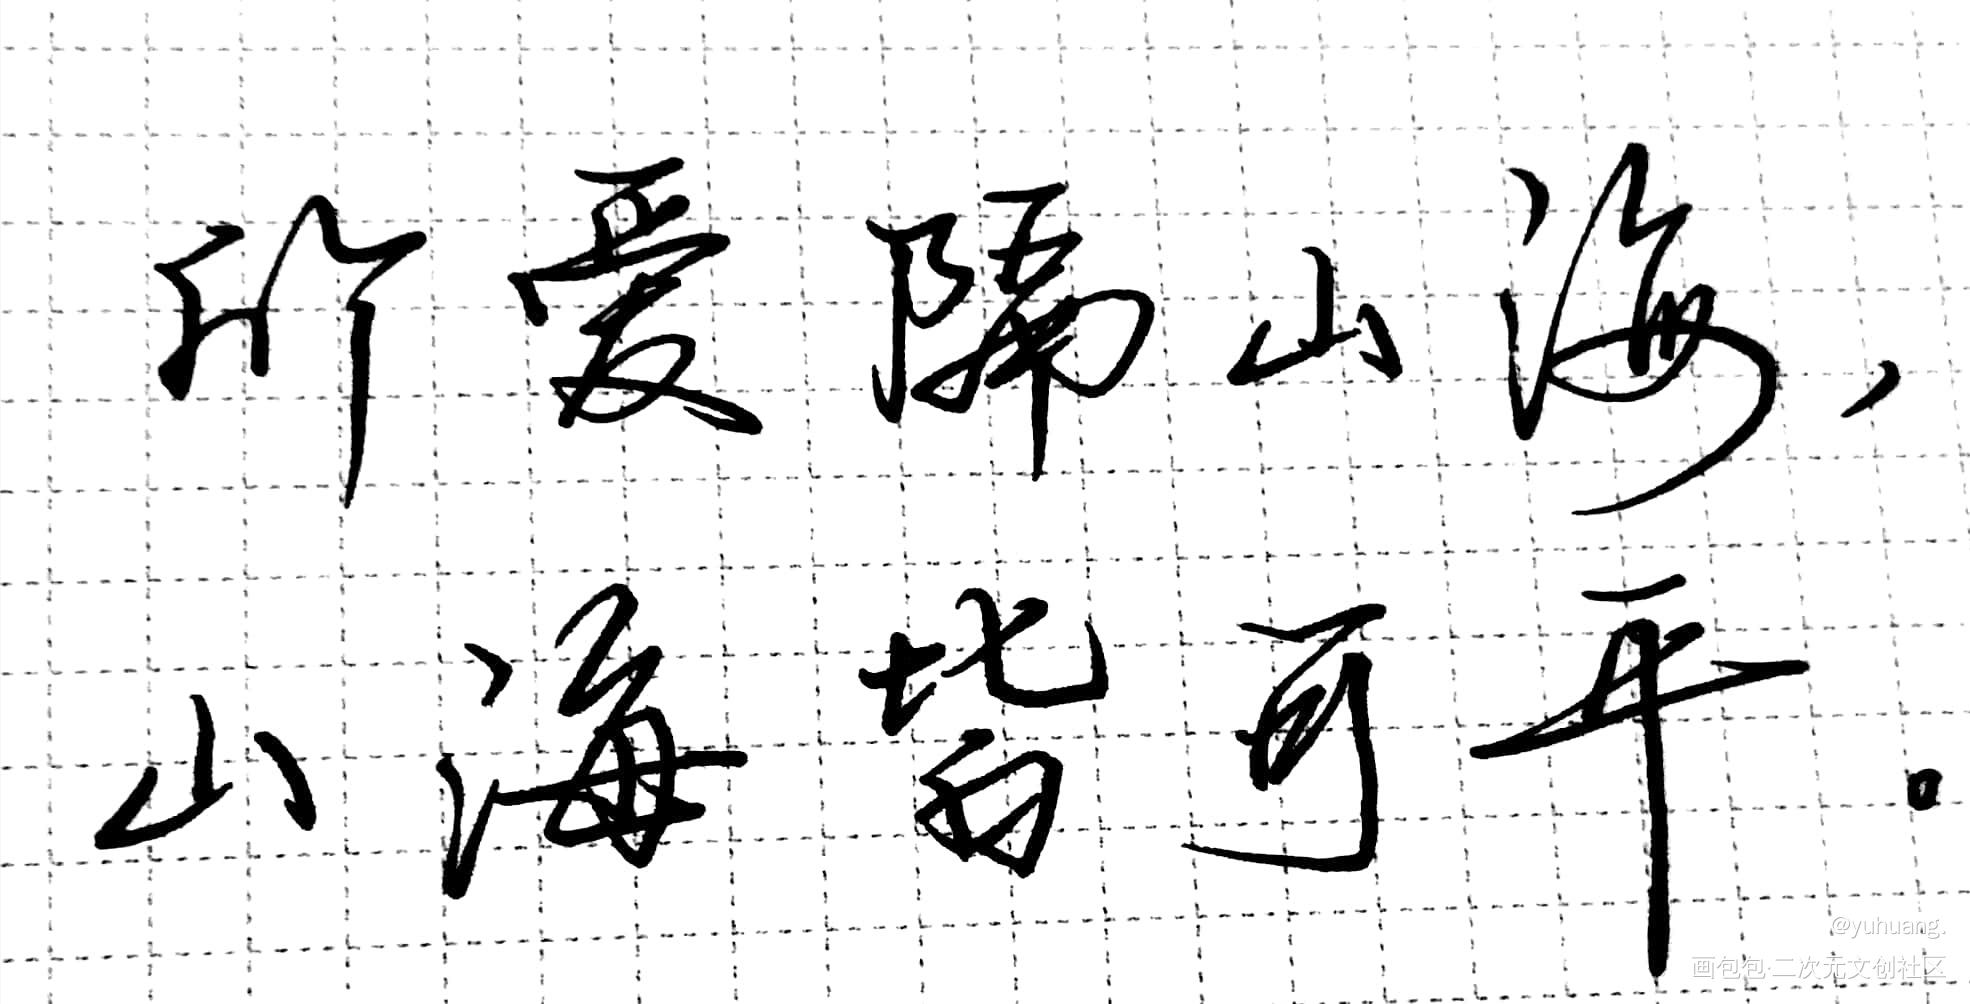 所爱隔山海,
山海皆可平。
@yuhuang.
画包包·二次元文创社区